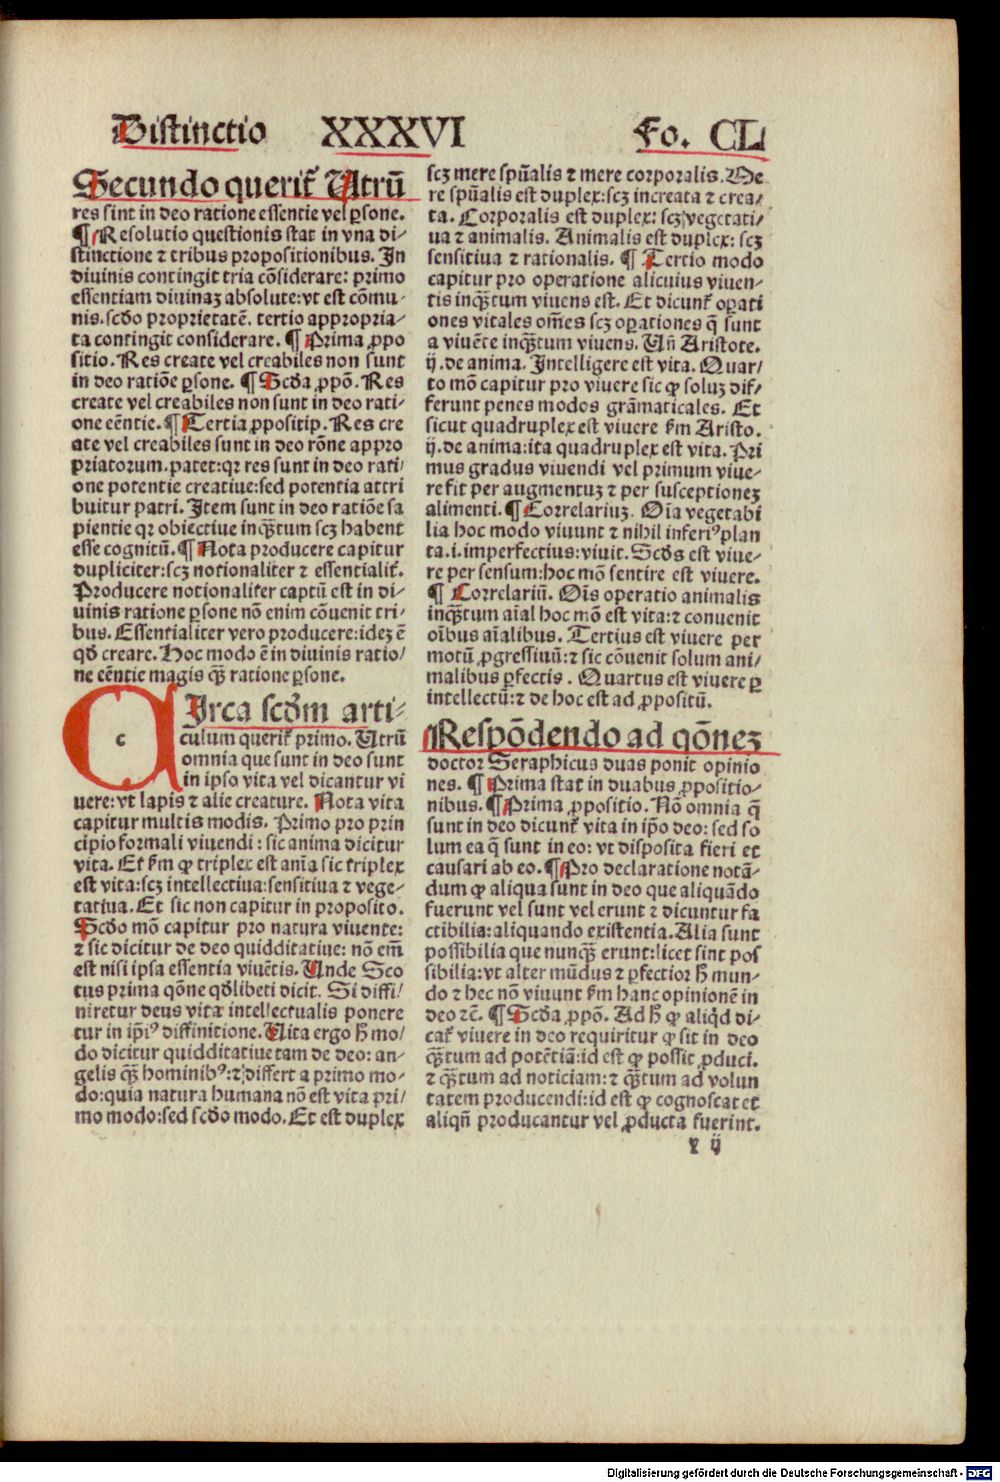 Distinctio XXXVI Fo. CL
Secundo querit᷑ Utrū
res sint in deo ratione essentie vel ꝑsone.
¶ Resolutio questionis stat in vna di⸗
stinctione ⁊ tribus propositionibus. In
diuinis contingit tria cōsiderare: primo
essentiam diuinaꝫ absolute: vt est cōmu⸗
nis. scd̄o proprietatē. tertio appropria⸗
ta contingit considerare. ¶ Prima ꝓpo
sitio. Res create vel creabiles non sunt
in deo ratiōe ꝑsone. ¶ Scd̄a ꝓpō. Res
create vel creabiles non sunt in deo rati⸗
one eēntie. ¶ Tertia ꝓpositip. Res cre
ate vel creabiles sunt in deo rōne appro
priatorum. patet: qꝛ res sunt in deo rati⸗
one potentie creatiue: sed potentia attri
buitur patri. Item sunt in deo ratiōe sa
pientie qꝛ obiectiue inqᷓtum scꝫ habent
esse cognitū. ¶ Nota producere capitur
dupliciter: scꝫ notionaliter ⁊ essentialit᷑.
Producere notionaliter captū est in di⸗
uinis ratione ꝑsone nō enim cōuenit tri⸗
bus. Essentialiter vero producere: ideꝫ ē
qd̄ creare. Hoc modo ē in diuinis ratio⸗
ne eēntie magis qᷓꝫ ratione ꝑsone.
c
CIrca scd̄m arti⸗
culum querit᷑ primo. Utrū
omnia que sunt in deo sunt
in ipso vita vel dicantur vi
uere: vt lapis ⁊ alie creature. Nota vita
capitur multis modis. Primo pro prin
cipio formali viuendi: sic anima dicitur
vita. Et ẜm ꝙ triplex est aīa sic triplex
est vita: scꝫ intellectiua: sensitiua ⁊ vege⸗
tatiua. Et sic non capitur in proposito.
Scd̄o mō capitur pro natura viuente:
⁊ sic dicitur de deo quidditatiue: nō em̄
est nisi ipsa essentia viuētis. Unde Sco
tus prima qōne qd̄libeti dicit. Si diffi⸗
niretur deus vita intellectualis ponere
tur in ipiꝰ diffinitione. Uita ergo h̄ mo⸗
do dicitur quidditatiue tam de deo: an⸗
gelis qᷓꝫ hominibꝰ: ⁊ differt a primo mo⸗
do: quia natura humana nō est vita pri⸗
mo modo: sed scd̄o modo. Et est duplex
scꝫ mere spūalis ⁊ mere corporalis. Me
re spūalis est duplex: scꝫ increata ⁊ crea⸗
ta. Corporalis est duplex: scꝫ vegetati⸗
ua ⁊ animalis. Animalis est duplex: scꝫ
sensitiua ⁊ rationalis. ¶ Tertio modo
capitur pro operatione alicuius viuen⸗
tis inqᷓꝫtum viuens est. Et dicunt᷑ oꝑati
ones vitales oēs scꝫ oꝑationes q̄ sunt
a viuēte inqᷓꝫtum viuens. Un̄ Aristote.
ij. de anima. Intelligere est vita. Quar⸗
to mō capitur pro viuere sic ꝙ soluꝫ dif⸗
ferunt penes modos grāmaticales. Et
sicut quadruplex est viuere ẜm Aristo.
ij. de anima: ita quadruplex est vita. Pri
mus gradus viuendi vel primum viue⸗
re fit per augmentuꝫ ⁊ per susceptioneꝫ
alimenti. ¶ Correlariuꝫ. Oīa vegetabi
lia hoc modo viuunt ⁊ nihil inferiꝰ plan
ta .i. imperfectius: viuit. Scd̄s est viue⸗
re per sensum: hoc mō sentire est viuere.
¶ Correlariū. Oīs operatio animalis
inqᷓꝫtum aīal hoc mō est vita: ⁊ conuenit
oībus aīalibus. Tertius est viuere per
motū ꝓgressiuū: ⁊ sic cōuenit solum ani⸗
malibus ꝑfectis. Quartus est viuere ꝑ
intellectū: ⁊ de hoc est ad ꝓpositū.
Respōdendo ad qōneꝫ
doctor Seraphicus duas ponit opinio
nes. ¶ Prima stat in duabus ꝓpositio⸗
nibus. ¶ Prima ꝓpositio. Nō omnia q̄
sunt in deo dicunt᷑ vita in ip̄o deo: sed so
lum ea q̄ sunt in eo: vt disposita fieri et
causari ab eo. ¶ Pro declaratione notā⸗
dum ꝙ aliqua sunt in deo que aliquādo
fuerunt vel sunt vel erunt ⁊ dicuntur fa
ctibilia: aliquando existentia. Alia sunt
possibilia que nunqᷓꝫ erunt: licet sint pos
sibilia: vt alter mūdus ⁊ ꝑfectior h̄ mun⸗
do ⁊ hec nō viuunt ẜm hanc opinionē in
deo ⁊cē. ¶ Scd̄a ꝓpō. Ad h̄ ꝙ aliqͥd di⸗
cat᷑ viuere in deo requiritur ꝙ sit in deo
qᷓꝫtum ad potētiā: id est ꝙ possit ꝓduci.
⁊ qᷓꝫtum ad noticiam: ⁊ qᷓꝫtum ad volun
tatem producendi: id est ꝙ cognoscat et
aliqn̄ producantur vel ꝓducta fuerint.
v ij
Digitalisierung gefördert durch die Deutsche Forschungsgemeinschaft - DFG